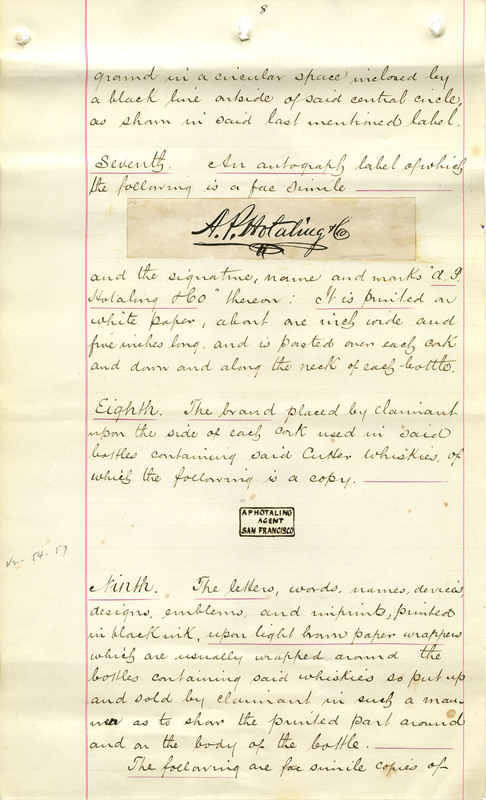 8
ground in a circular space inclosed by
a black line outside of said central circle,
as shown in said last mentioned label.
Seventh. An autograph label of which
the following is a fac simile
A. P. Hotaling & Co
and the signature, name and marks "A. P.
Hotaling & Co" thereon: It is printed on
white paper, about one inch wide and
five inches long, and is pasted over each cork
and down and along the neck of each bottle.
Eighth. The brand placed by claimant
upon the side of each cork used in said
bottles containing said Cutter whiskies, of
which the following is a copy.
A P HOTALING
AGENT
SAN FRANCISCO
54-57
Ninth. The letters, words, names, devices,
designs, emblems, and imprints, printed
in black ink, upon light brown paper wrappers
which are usually wrapped around the
bottles containing said whiskies so put up
and sold by claimant in such a man-
ner as to show the printed part around
and on the body of the bottle.
The following are fac simile copies of